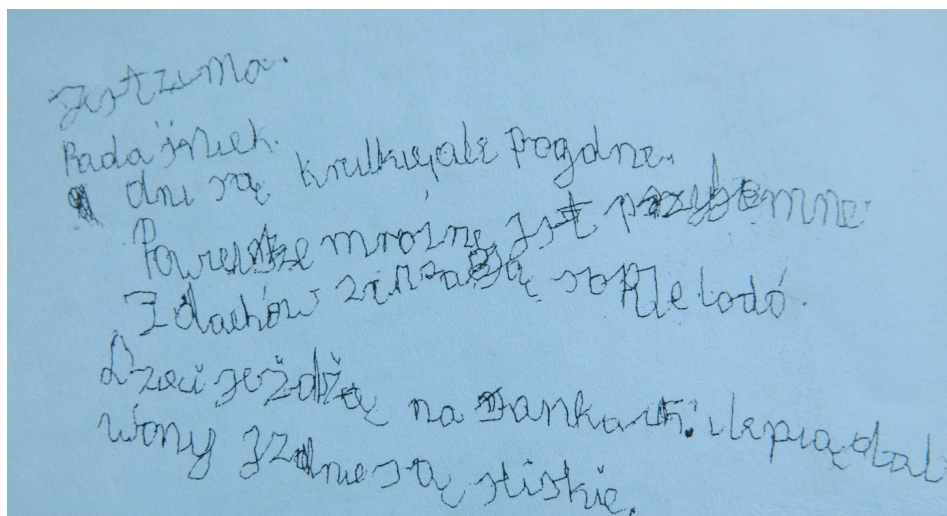 Jest zima.
Pada śniek.
dni są krutkie, ale Pogdne.
Powietsze mroźne jest przyjemne
Z dachów zwisają sople lodó.
Dzieci jeżdżą na sankach. i lepią bał
wany jezdnie są sliskie.